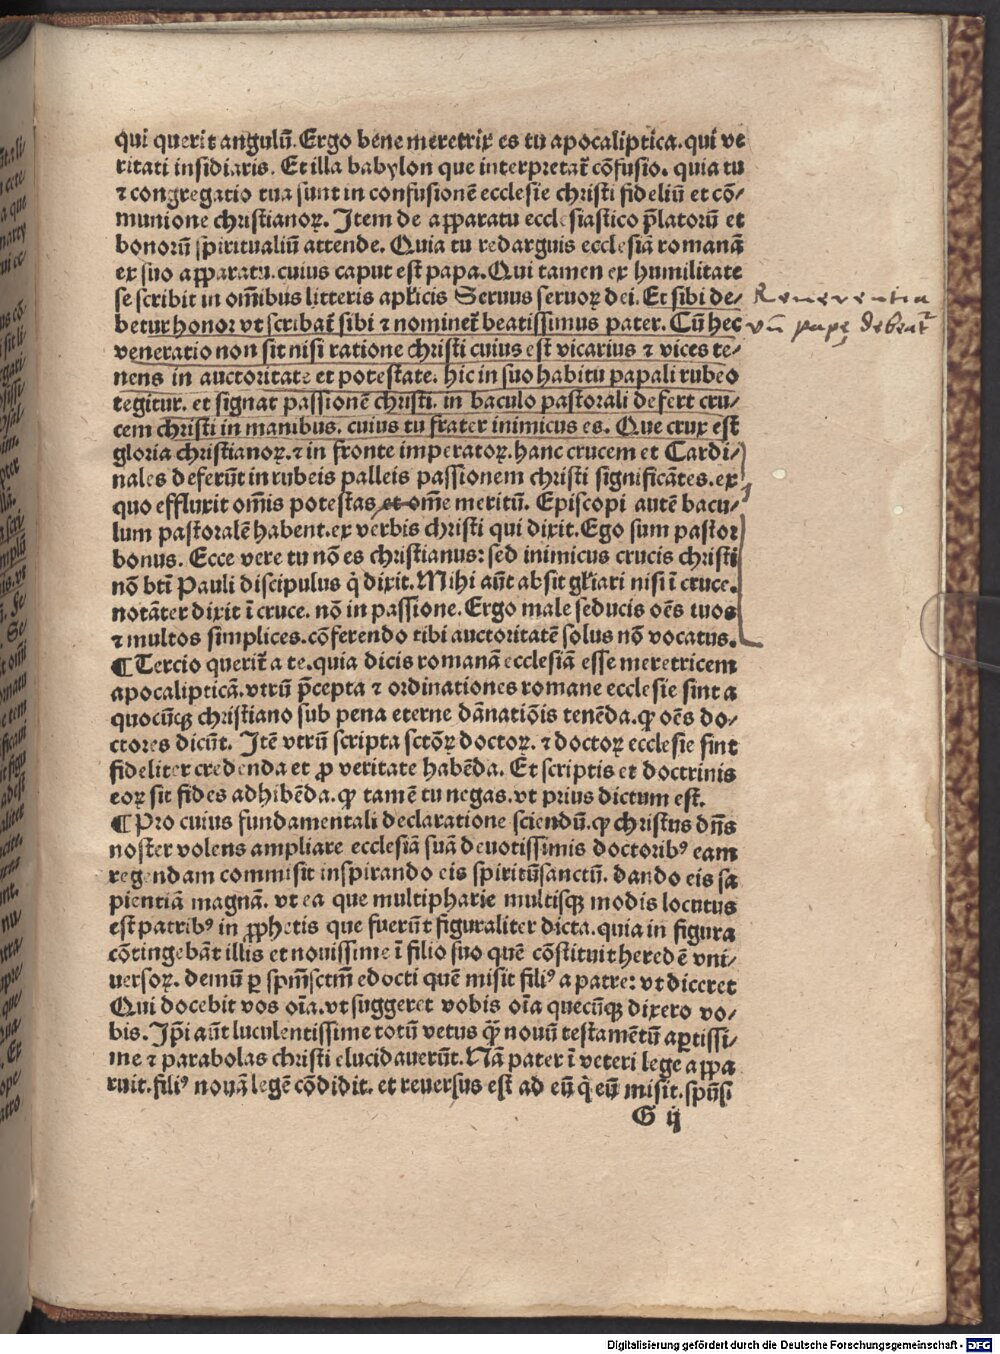 qui querit angulū. Ergo bene meretrix es tu apocaliptica. qui ve
ritati insidiaris. Et illa babylon que interpretat̄ cōfusio. quia tu
⁊ congregatio tua sunt in confusionē ecclesie christi fideliū et cō⸗
munione christianoꝝ. Item de apparatu ecclesiastico p̄latorū et
bonorū spiritualiū attende. Quia tu redarguis ecclesiā romanā
ex suo apparatu. cuius caput est papa. Qui tamen ex humilitate
se scribit in om̄ibus litteris apl̄icis Seruus seruoꝝ dei. Et sibi de⸗
betur honor vt scribat̄ sibi ⁊ nominet̄ beatissimus pater. Cū hec
veneratio non sit nisi ratione christi cuius est vicarius ⁊ vices te⸗
nens in auctoritate et potestate. hic in suo habitu papali rubeo
tegitur. et signat passionē christi. in baculo pastorali defert cru⸗
cem christi in manibus. cuius tu frater inimicus es. Que crux est
gloria christianoꝝ. ⁊ in fronte imperatoꝝ. hanc crucem et Cardi⸗
nales deferūt in rubeis palleis passionem christi significātes. ex
quo effluxit om̄is potestas et om̄e meritū. Episcopi autē bacu⸗
lum pastoralē habent. ex verbis christi qui dixit. Ego sum pastor
bonus. Ecce vere tu nō es christianus: sed inimicus crucis christi
nō bt̄i Pauli discipulus q̇ dixit. Mihi aūt absit gl̄iari nisi ī cruce.
notāter dixit ī cruce. nō in passione. Ergo male seducis oēs tuos
⁊ multos simplices. cōferendo tibi auctoritatē solus nō vocatus.
¶ Tercio querit̄ a te. quia dicis romanā ecclesiā esse meretricem
apocalipticā. vtrū p̄cepta ⁊ ordinationes romane ecclesie sint a
quocūqꝫ christiano sub pena eterne dānatiōis tenēda. ꝙ oēs do⸗
ctores dicūt. Itē vtrū scripta sctōꝝ doctoꝝ. ⁊ doctoꝝ ecclesie sint
fideliter credenda et ꝓ veritate habēda. Et scriptis et doctrinis
eoꝝ sit fides adhibēda. ꝙ tamē tu negas. vt prius dictum est.
¶ Pro cuius fundamentali declaratione sciendū. ꝙ christus dn̄s
noster volens ampliare ecclesiā suā deuotissimis doctoribꝰ eam
regendam commisit inspirando eis spiritūsanctū. dando eis sa
pientiā magnā. vt ea que multipharie multisqꝫ modis locutus
est patribꝰ in ꝓphetis que fuerūt figuraliter dicta. quia in figura
cōtingebāt illis et nouissime ī filio suo quē cōstituit heredē vni⸗
uersoꝝ. demū ꝑ spm̄sctm̄ edocti quē misit filiꝰ a patre: vt diceret
Qui docebit vos oīa. vt suggeret vobis oīa quecūqꝫ dixero vo⸗
bis. Ip̄i aūt luculentissime totū vetus qꝫ nouū testamētū aptissi⸗
me ⁊ parabolas christi elucidauerūt. Nā pater ī veteri lege appa
ruit. filiꝰ nouā legē cōdidit. et reuersus est ad eū q̇ eū misit. spūssi
G ij
Reuerentia
vn̄ pape debeat̄
Digitalisierung gefördert durch die Deutsche Forschungsgemeinschaft - DFG